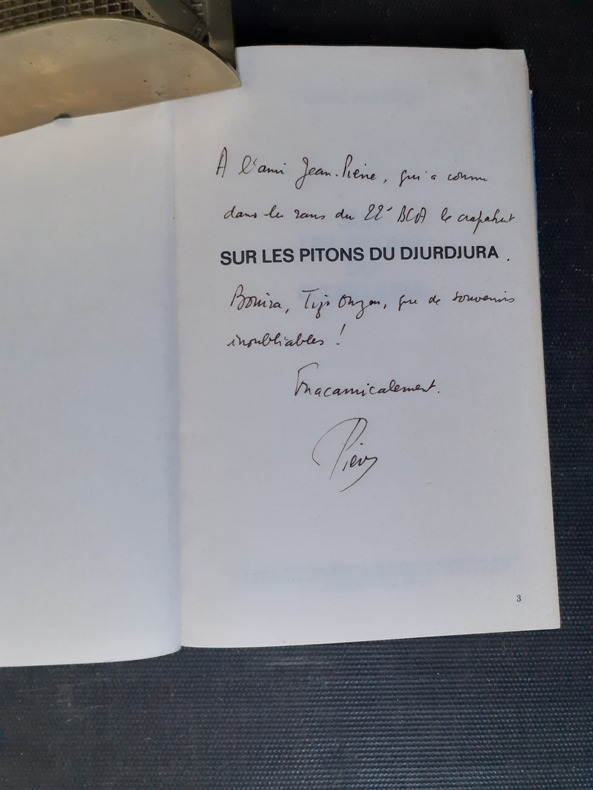 A l'ami Jean-Pierre, qui a connu
dans les rangs du 22e BCA le crapahut
SUR LES PITONS DU DJURDJURA.
Bouira, Tizi Ouzou, que de souvenirs
inoubliables !
Fnacamicalement.
Pierre
3